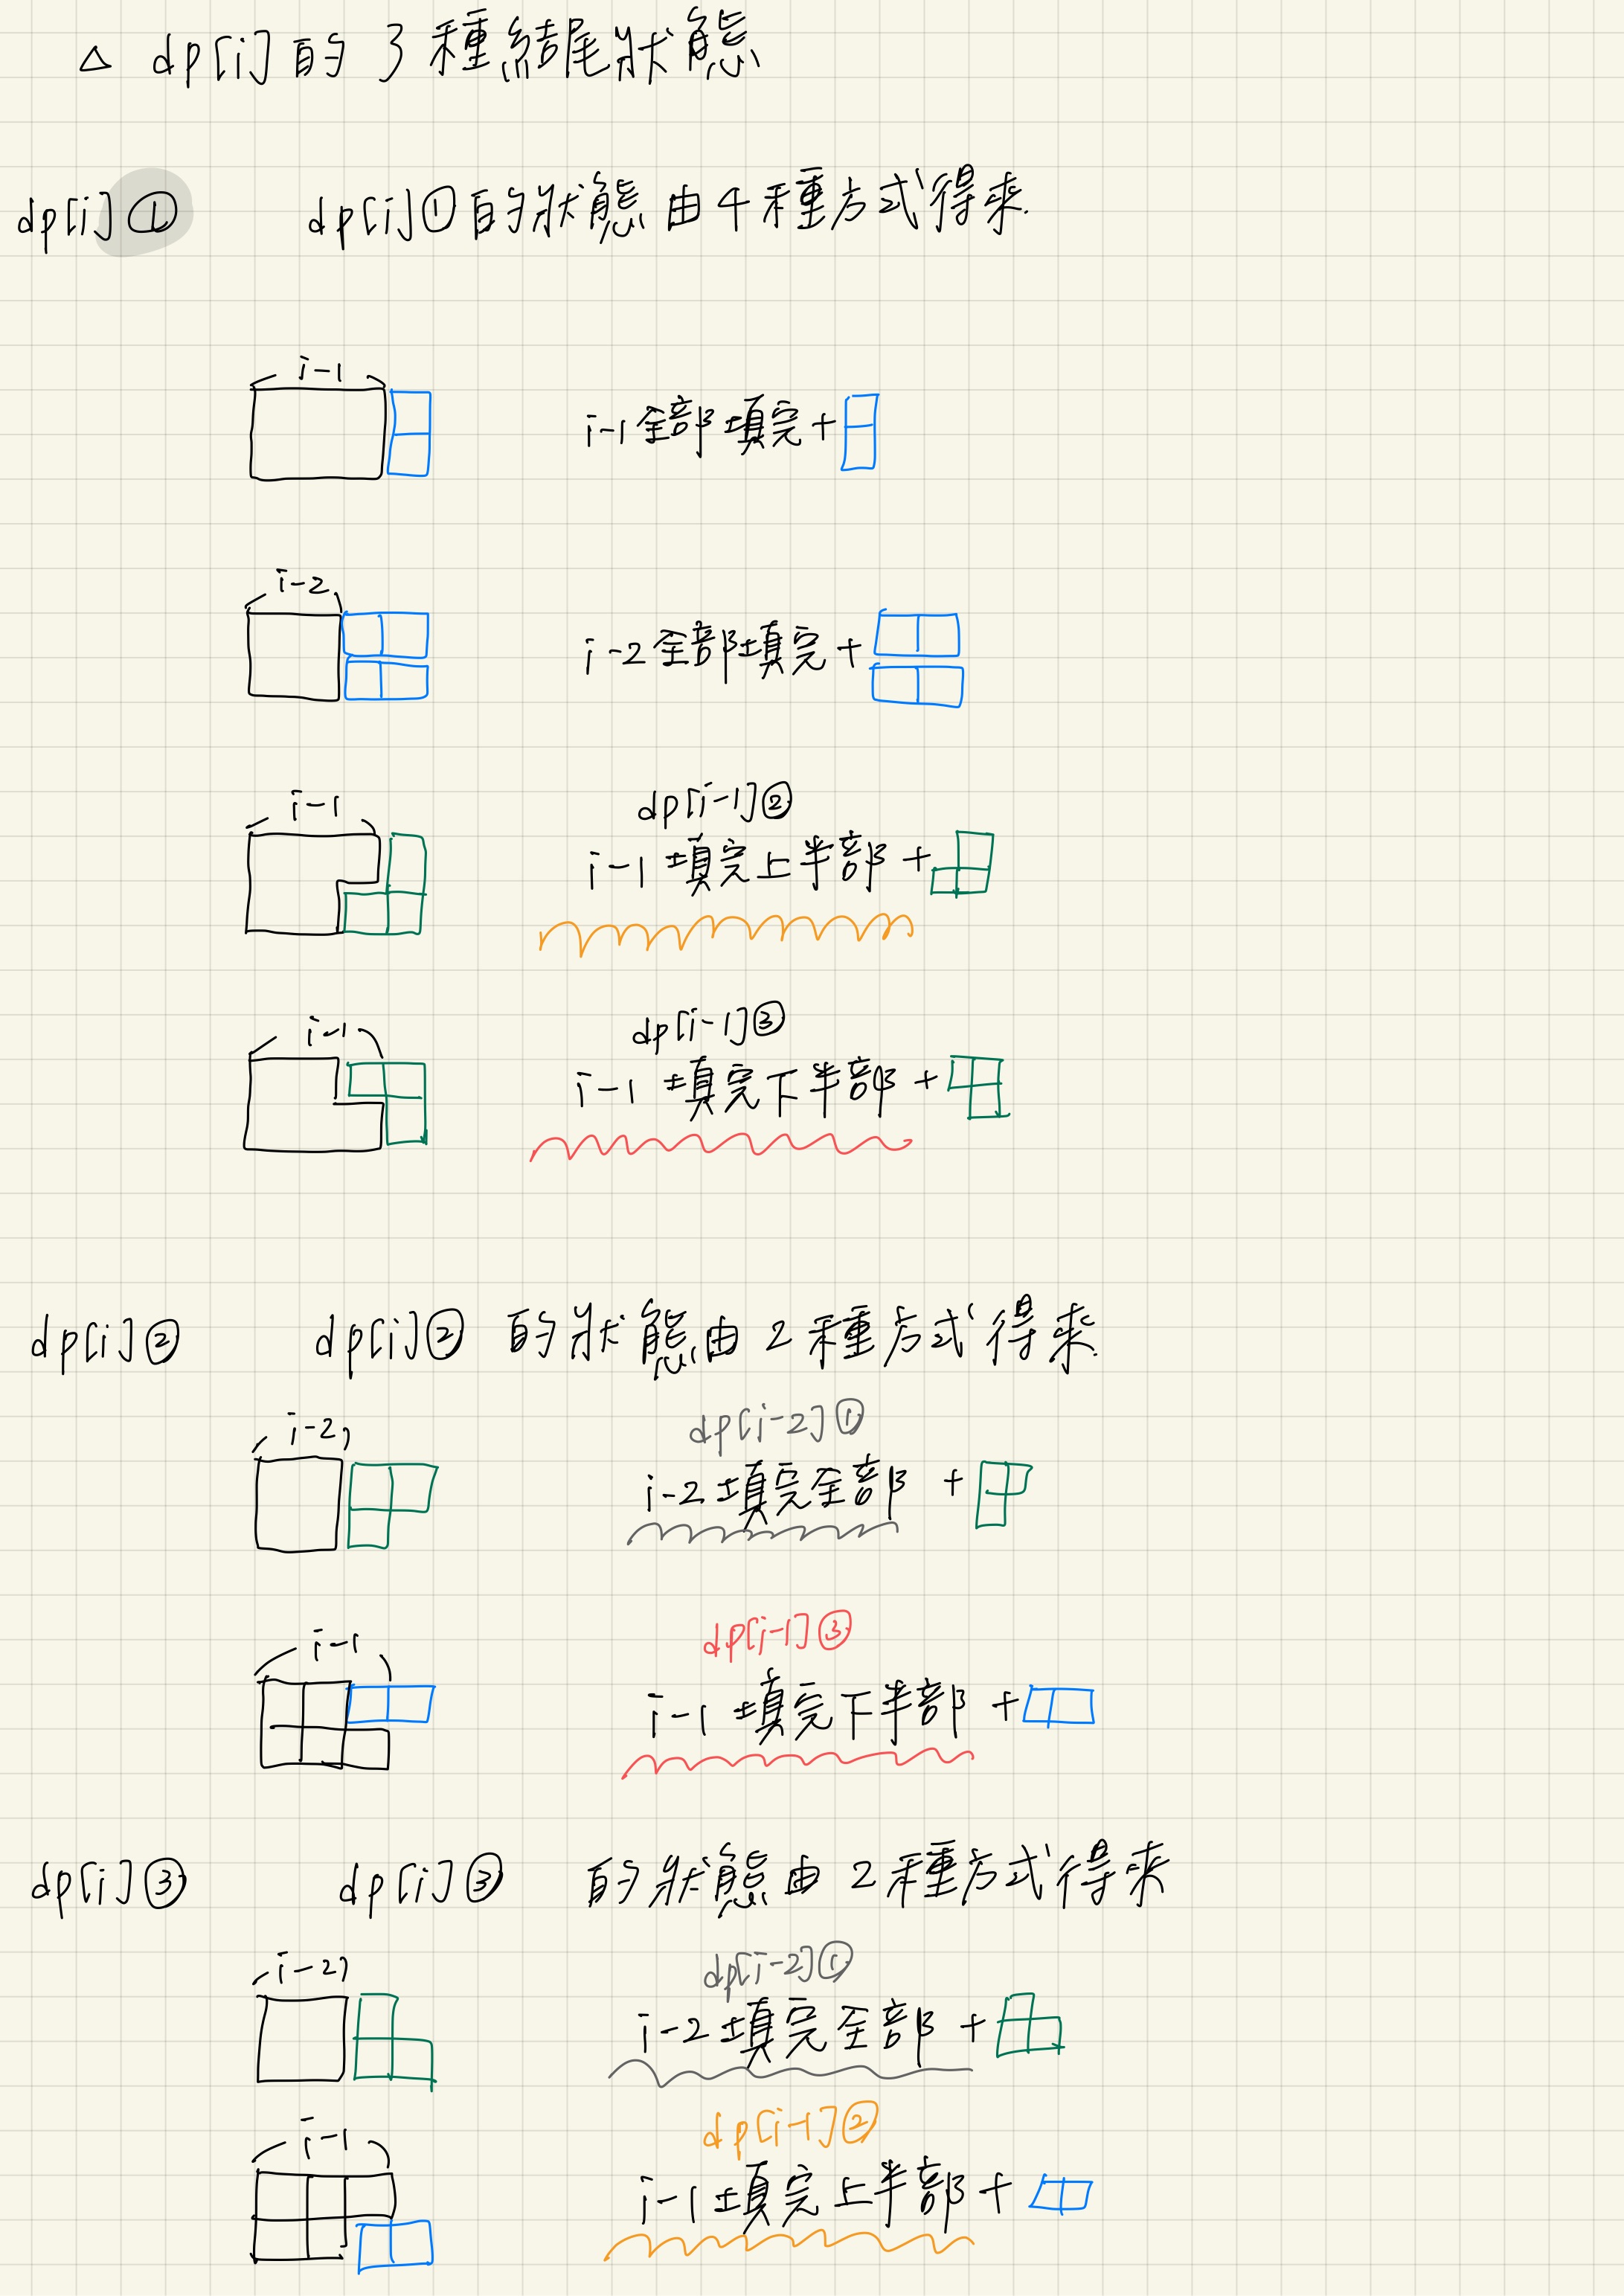 △ dp[i]的3種結尾狀態
dp[i]① dp[i]①的狀態由4種方式得來.
i-1
i-1全部填完+
i-2
i-2全部填完+
i-1
dp[i-1]②
i-1 填完上半部+
i-1
dp[i-1]③
i-1 填完下半部+
dp[i]② dp[i]② 的狀態由2種方式得來.
i-2
dp[i-2]①
i-2填完全部 +
i-1
dp[i-1]③
i-1 填完下半部+
dp[i]③ dp[i]③ 的狀態由2種方式得來
i-2
dp[i-2]①
i-2填完全部+
i-1
dp[i-1]②
i-1填完上半部+